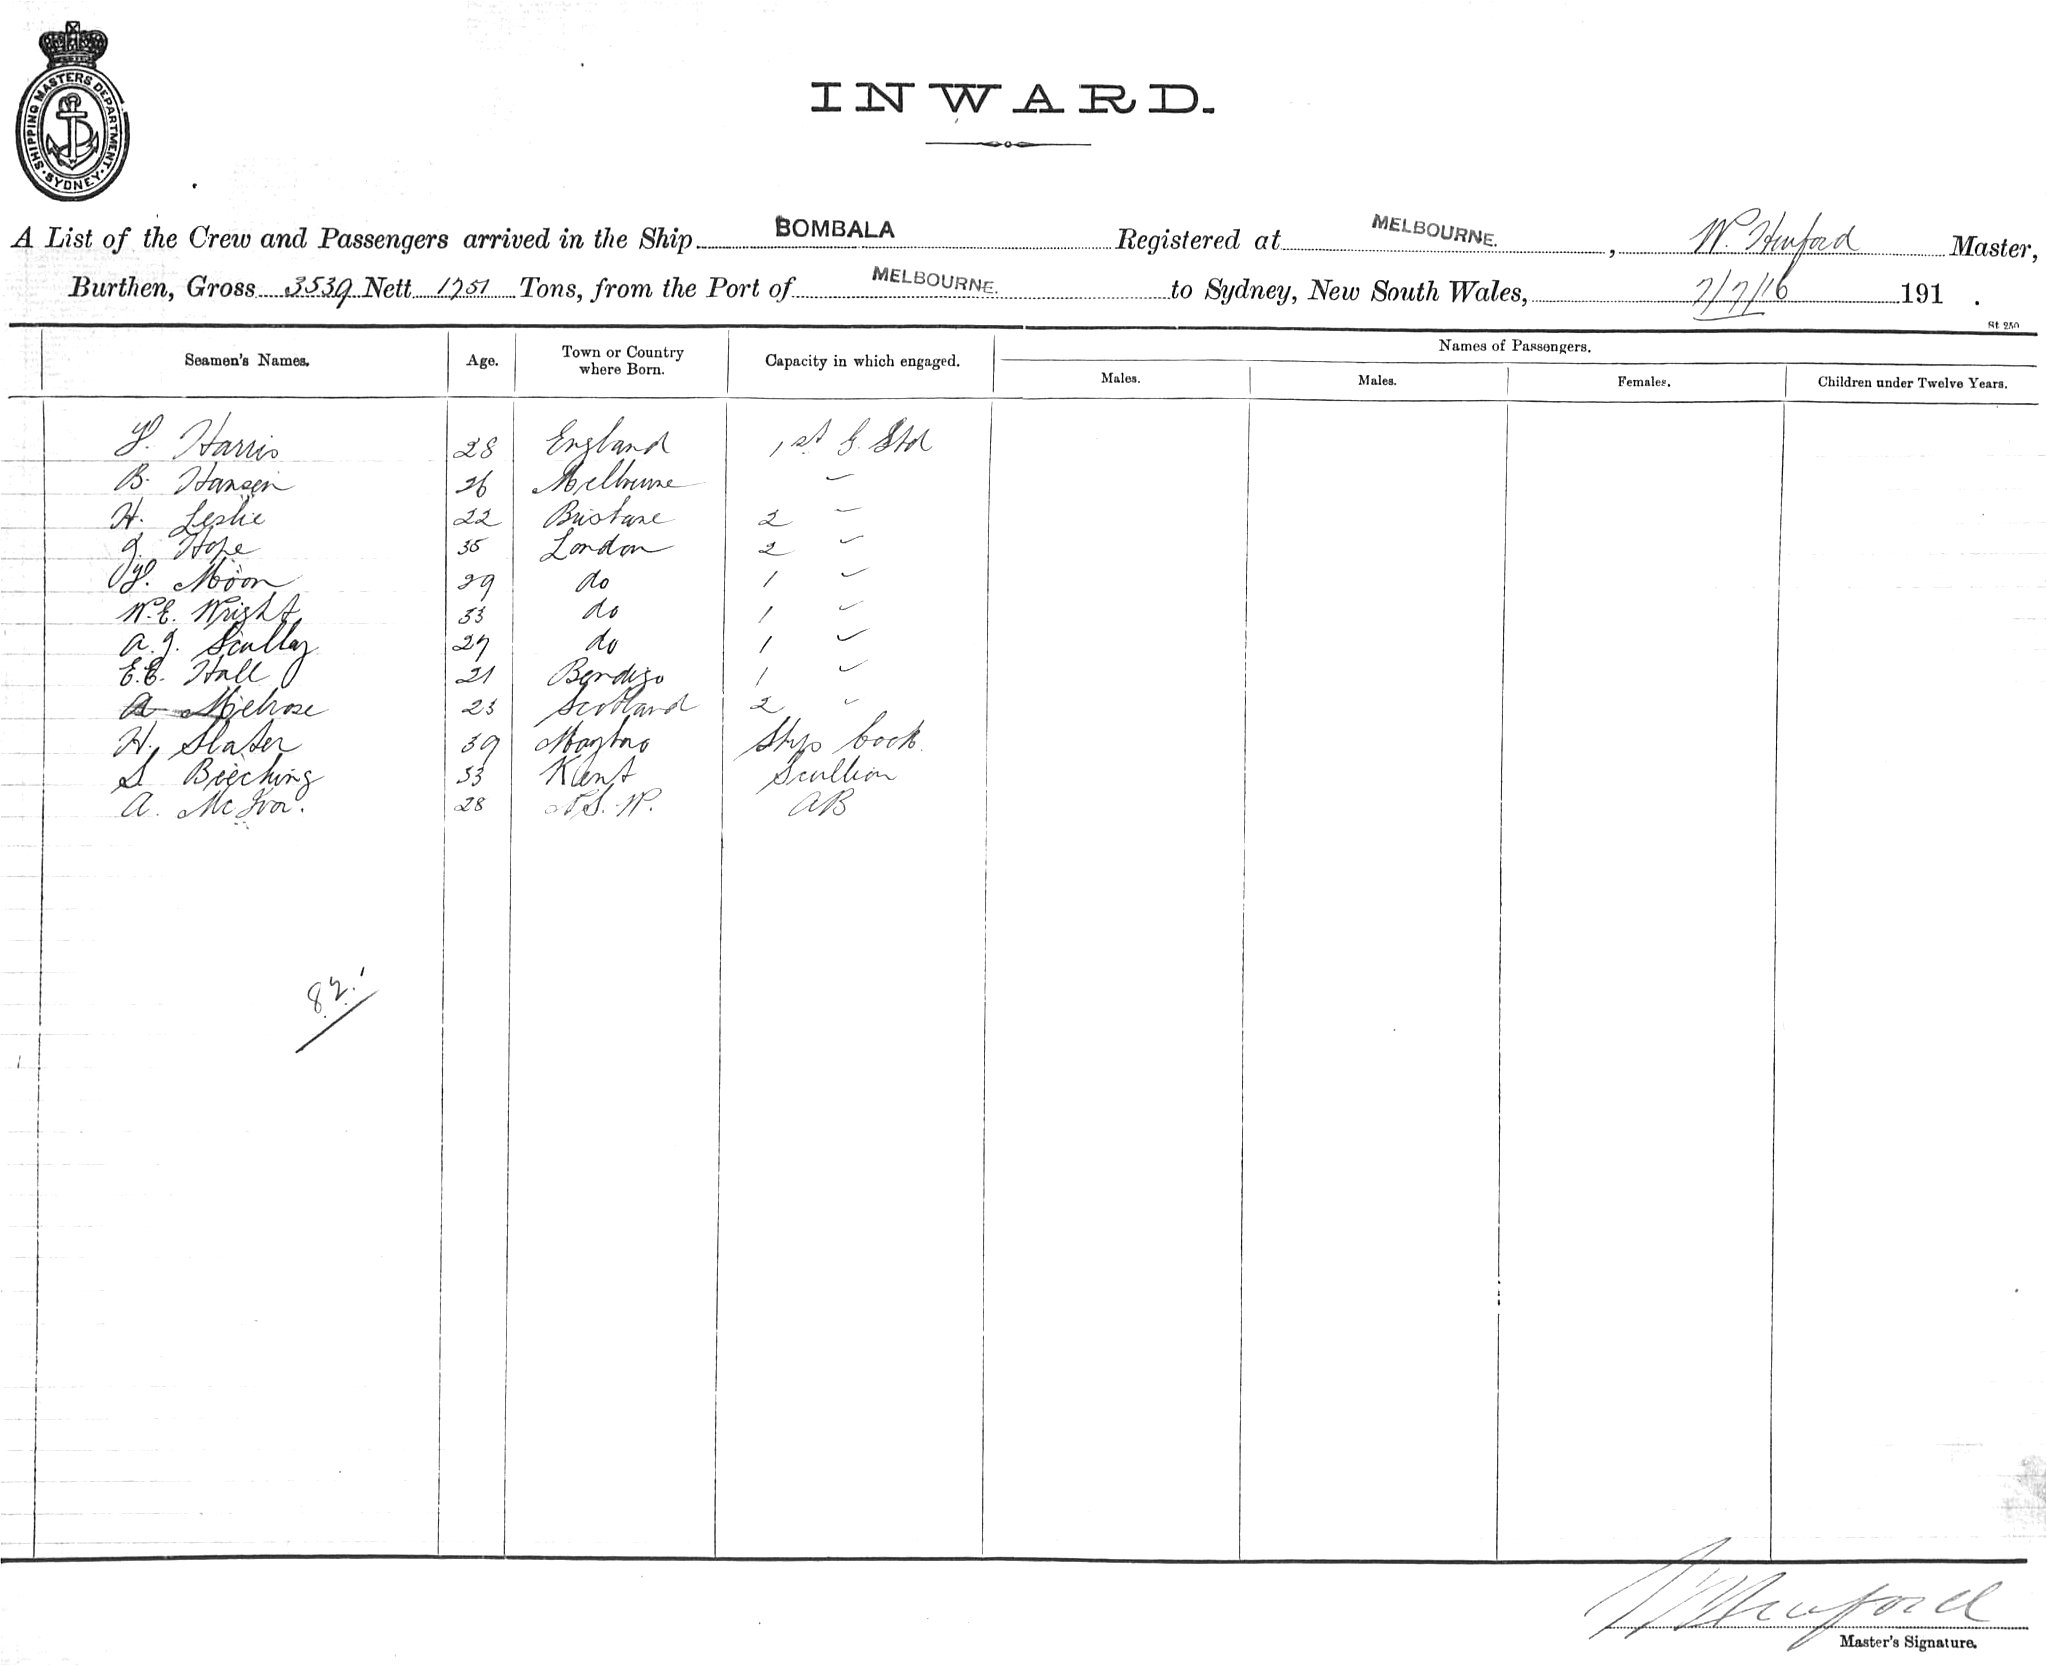 SHIPPING MASTERS DEPARTMENT. SYDNEY.
INWARD.
A List of the Crew and Passengers arrived in the Ship BOMBALA Registered at MELBOURNE. , W. Hurford Master,
Burthen, Gross 3539 Nett 1751 Tons, from the Port of MELBOURNE. to Sydney, New South Wales, 7/7/16 191 .
St 250
Seamen's Names. Age. Town or Country where Born. Capacity in which engaged. Names of Passengers.
Males. Males. Females. Children under Twelve Years.
Harris 28 England 1st G. Std
B. Hansen 26 Melbourne "
H. Leslie 22 Brisbane 2 "
J. Hope 35 London 2 "
Moon 29 do 1 "
W.E. Wright 33 do 1 "
A.J. Scullay 27 do 1 "
E.E. Hall 21 Bendigo 1 "
A Melrose 23 Scotland 2 "
H. Slater 39 Maybro Ships Cook
S. Beeching 33 Kent Scullion
A. McIvor. 28 N.S.W. AB
82.
Hurford
Master's Signature.